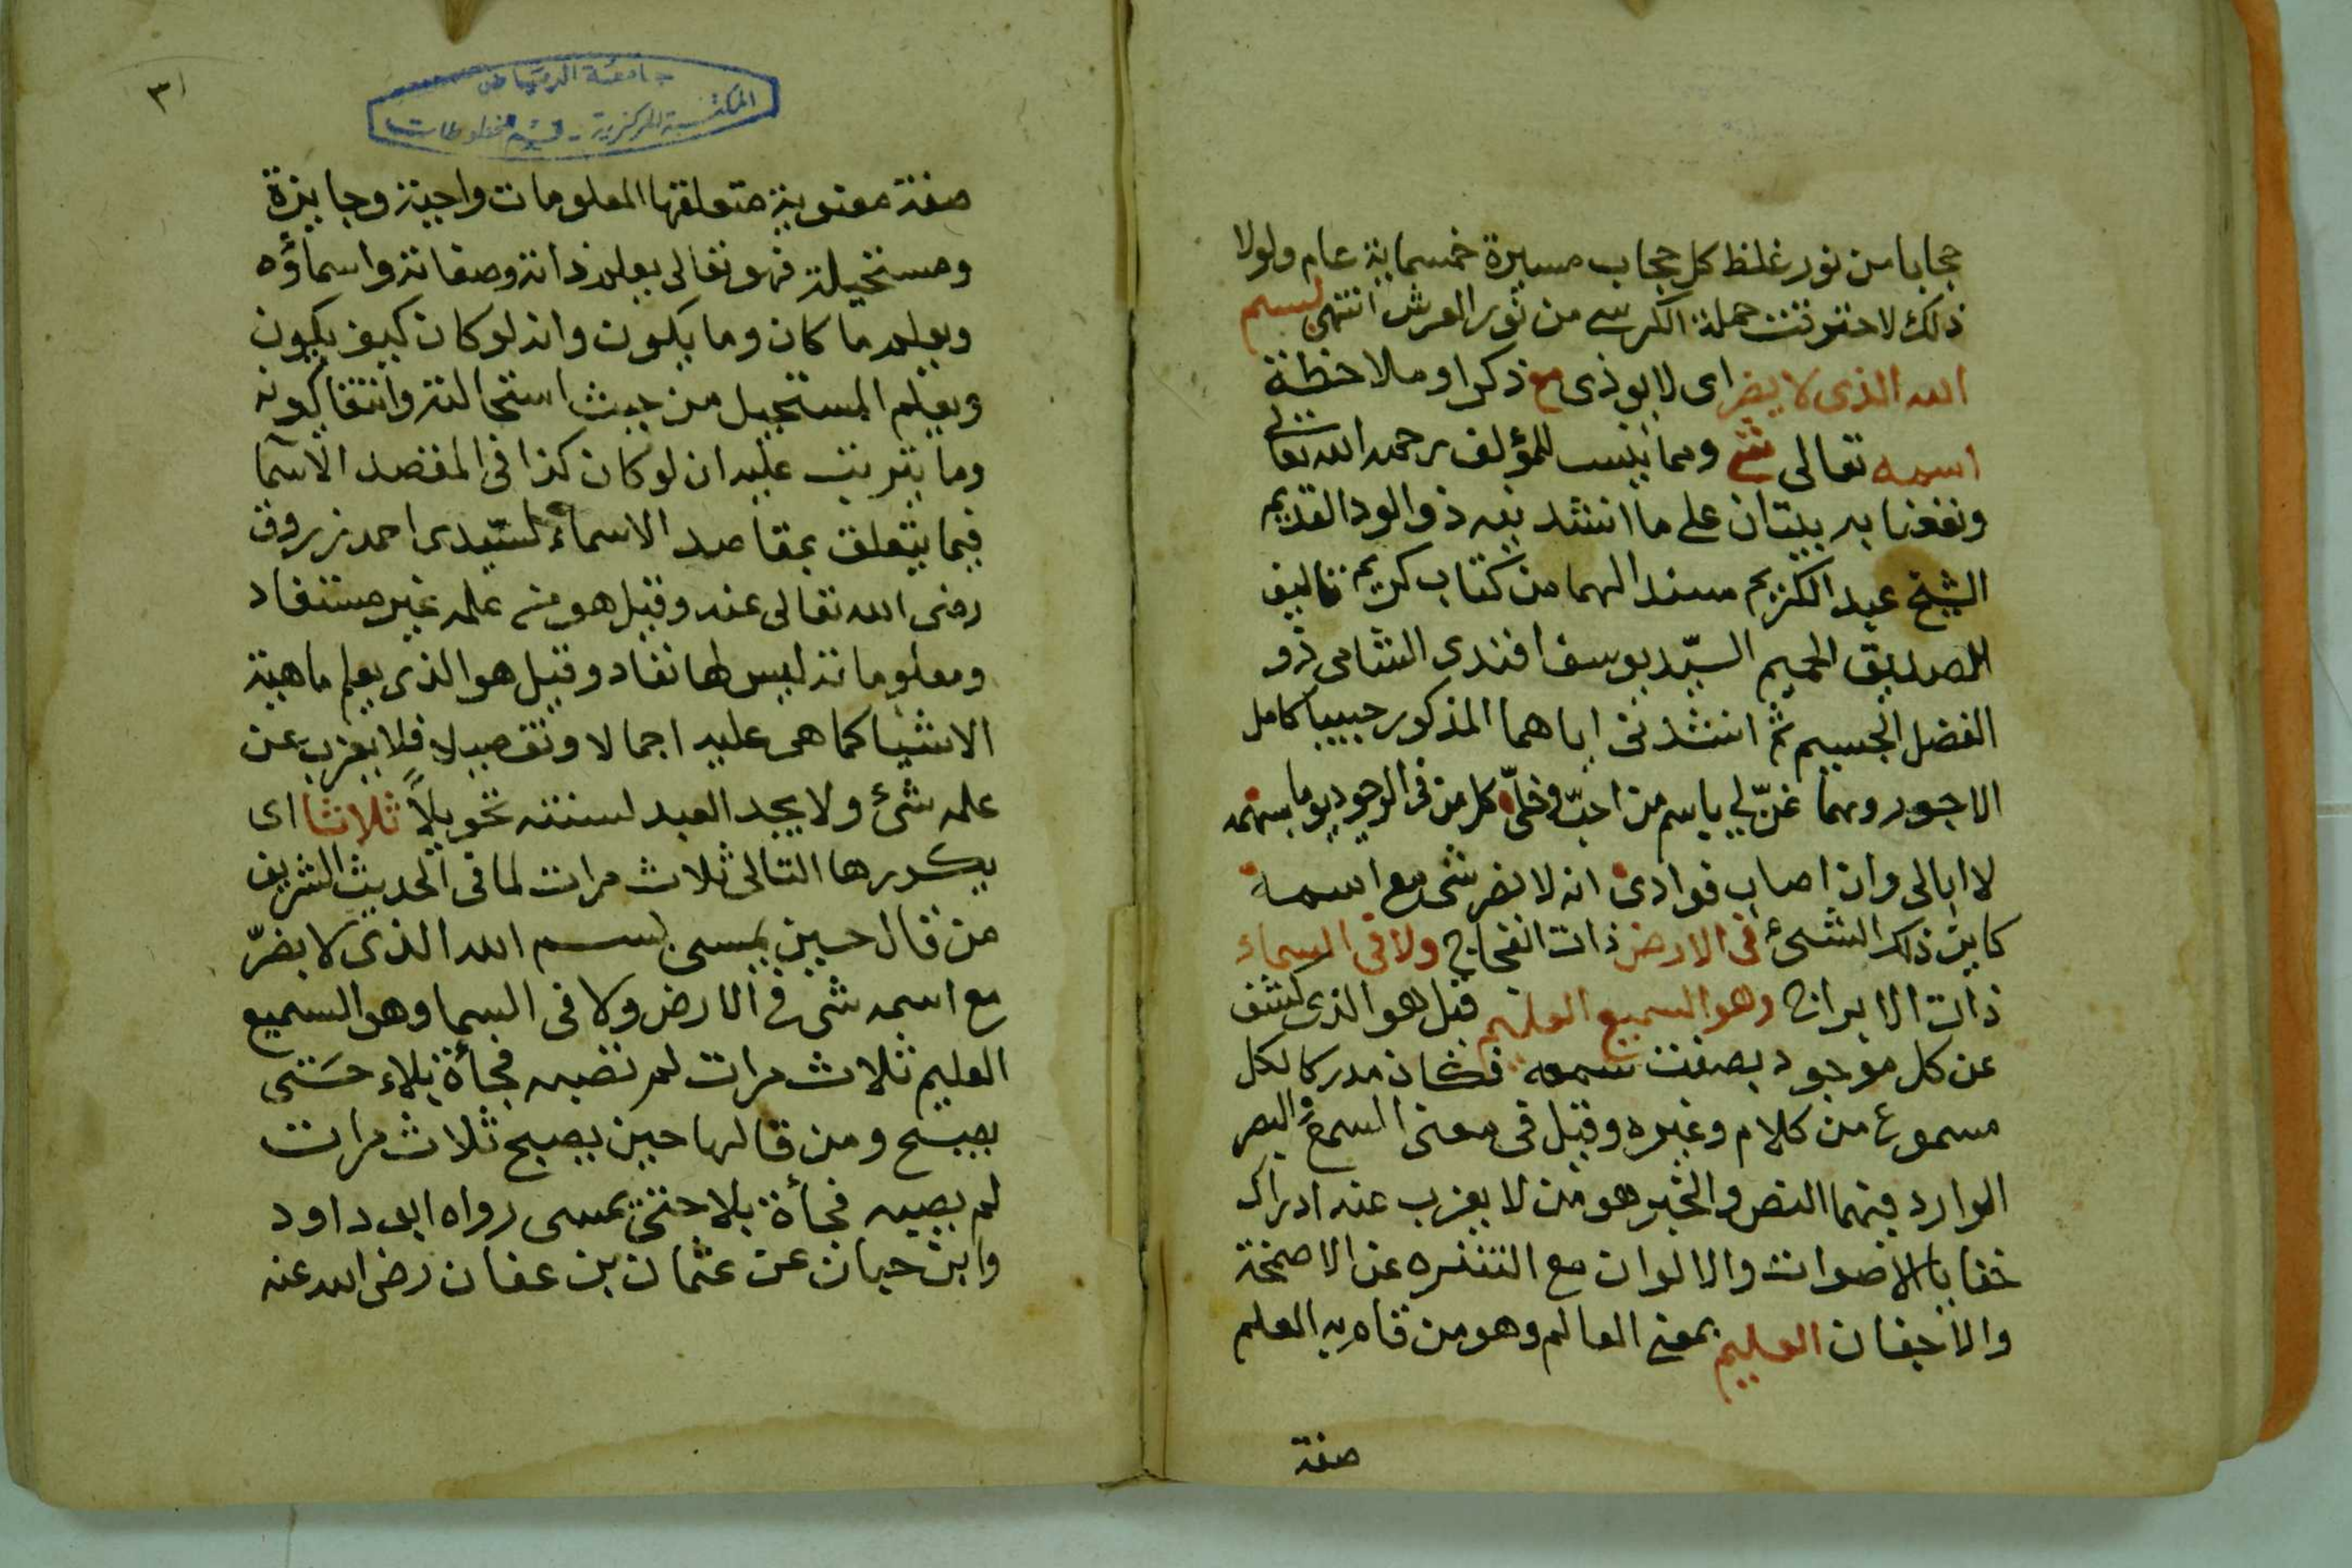 حجابا من نور غلظ كل حجاب مسيرة خمسماية عام ولولا
ذلك لاحترقت حملة الكرسي من نور العرش انتهى بسم
الله الذى لا يضر اى لا يوذى مع ذكر او ملاحظة
اسمه تعالى شئ ومما ينسب للمؤلف رحمه الله تعالى
ونفعنا به بيتان على ما انشدنيه ذو الود القديم
الشيخ عبد الكريم مسندا لهما من كتاب كريم تاليف
للصديق الحميم السيد يوسف افندى الشامى ذو
الفضل الجسيم ثم انشدنى اياهما المذكور حبيبا كامل
الاجور وهما غنّ لي باسم من احبّ وخلّ كل من في الوجود يوما بسهمه
لا ابالى وان اصاب فوادى انه لا يضر شى مع اسمه
كاين ذلك الشئ فى الارض ذات الفجاج ولا فى السماء
ذات الابراج وهو السميع العليم قيل هو الذى كشف
عن كل موجود بصفت سمعه فكان مدركا لكل
مسموع من كلام وغيره وقيل فى معنى السمع والبصر
الوارد فيهما النص والخبر هو من لا يعزب عنه ادراك
خفايا الاصوات والالوان مع التنزه عن الاصمخة
والاجفان العليم بمعنى العالم وهو من قام به العلم
صفة
٣١
جامعة الرياض
المكتبة المركزية - قسم المخطوطات
صفة معنوية متعلقها المعلومات واجبة وجايزة
ومستحيلة فهو تعالى يعلم ذاته وصفاته واسماؤه
ويعلم ما كان وما يكون وانه لو كان كيف يكون
ويعلم المستحيل من حيث استحالته وانتفا كونه
وما يترتب عليه ان لو كان كذا فى المقصد الاسما
فيما يتعلق بمقاصد الاسماء لسيّدى احمد زروق
رضى الله تعالى عنه وقيل هو من علمه غير مستفاد
ومعلوماته ليس لها نفاد وقيل هو الذى يعلم ماهية
الاشيا كما هى عليه اجمالا وتفصيلا فلا يعزب عن
علمه شئ ولا يجد العبد لسنته تحويلاً ثلاثا اى
يكررها التالى ثلاث مرات لما فى الحديث الشريف
من قال حين يمسى بسم الله الذى لا يضرّ
مع اسمه شى في الارض ولا فى السما وهو السميع
العليم ثلاث مرات لم تصبه فجأة بلاء حتى
يصبح ومن قالها حين يصبح ثلاث مرات
لم يصبه فجأة بلا حتى يمسى رواه ابو داود
وابن حبان عن عثمان بن عفان رضى الله عنه